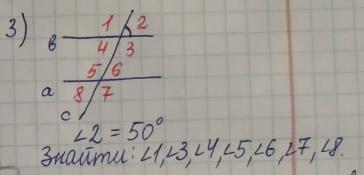 3)
1 2
в
4 3
5 6
а
8 7
с
∠2 = 50°
Знайти: ∠1,∠3,∠4,∠5,∠6,∠7,∠8.